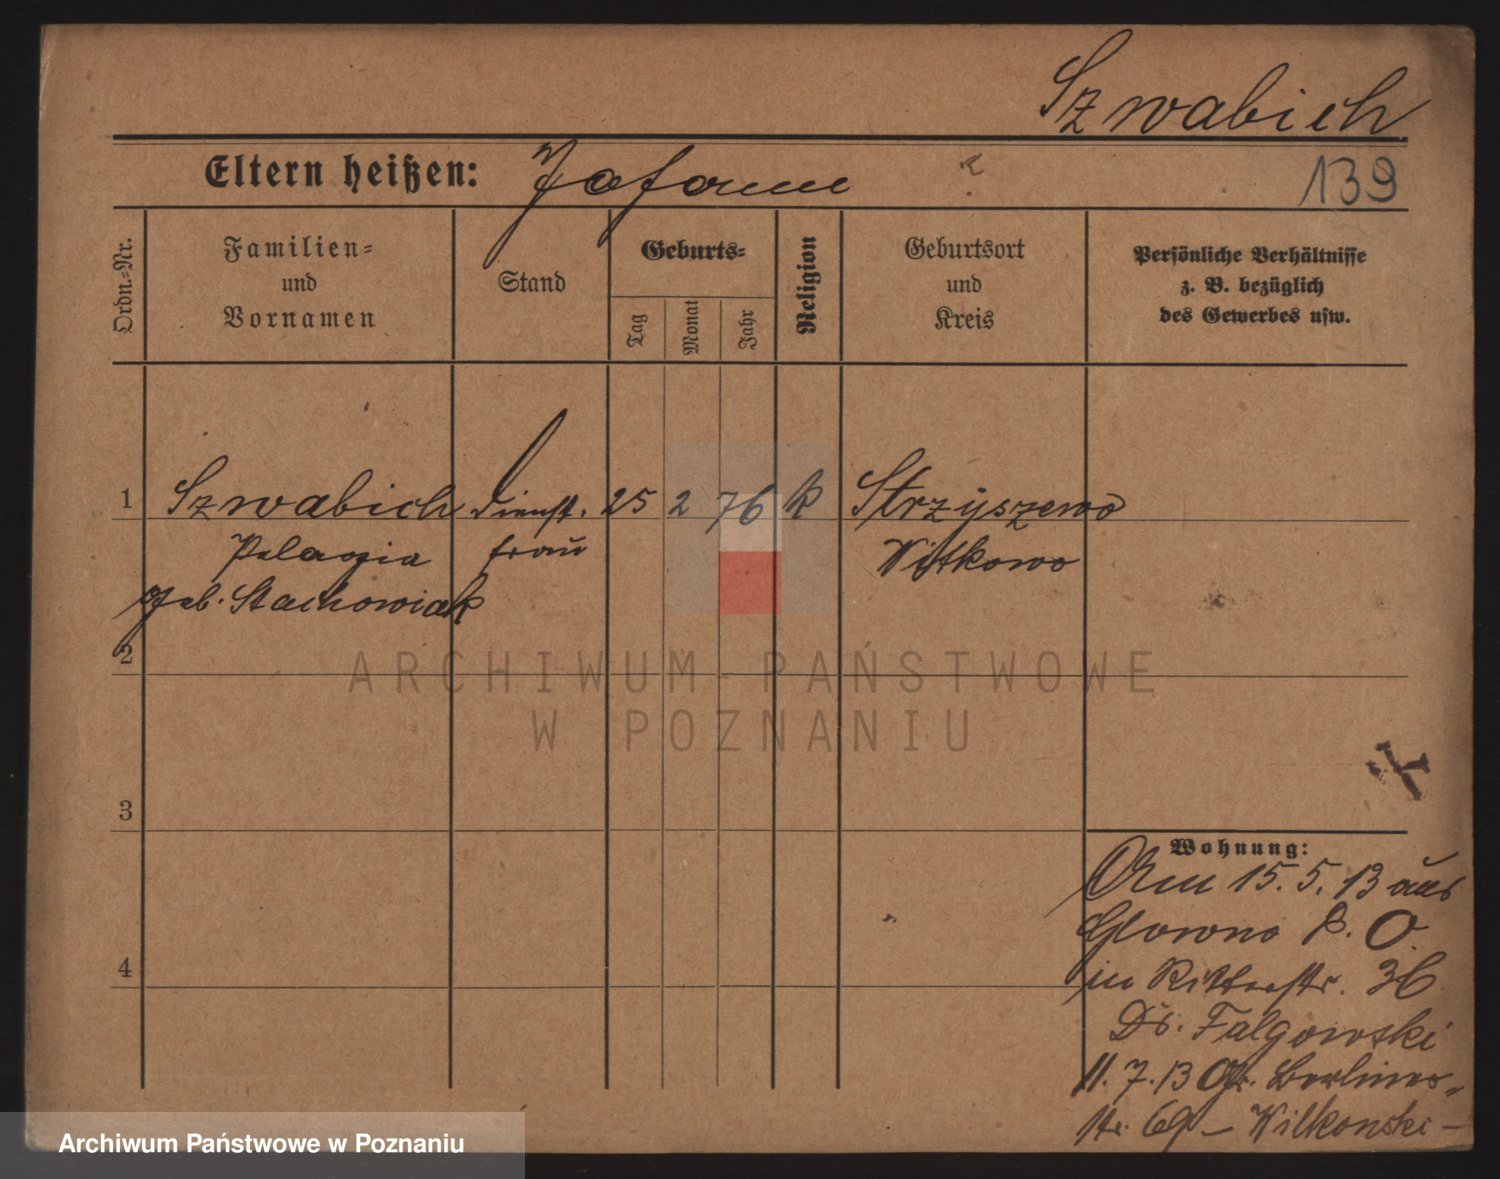 Szwabich
Eltern heißen: Johann
139
Ordn.-Nr.
Familien-
und
Vornamen
Stand
Geburts-
Tag
Monat
Jahr
Religion
Geburtsort
und
Kreis
Persönliche Verhältnisse
z. B. bezüglich
des Gewerbes usw.
1 Szwabich Dienst. 25 2 76 k Strzyszewo
Pelagia frau Witkowo
geb. Stachowiak
2
ARCHIWUM PAŃSTWOWE
W POZNANIU
3
Wohnung:
Am 15.5.13 aus
Glowno P. O.
in Ritterstr. 36
Dr. Falgowski
11.7.13 Gr. Berliner-
str. 69 – Wilkonski –
4
Archiwum Państwowe w Poznaniu